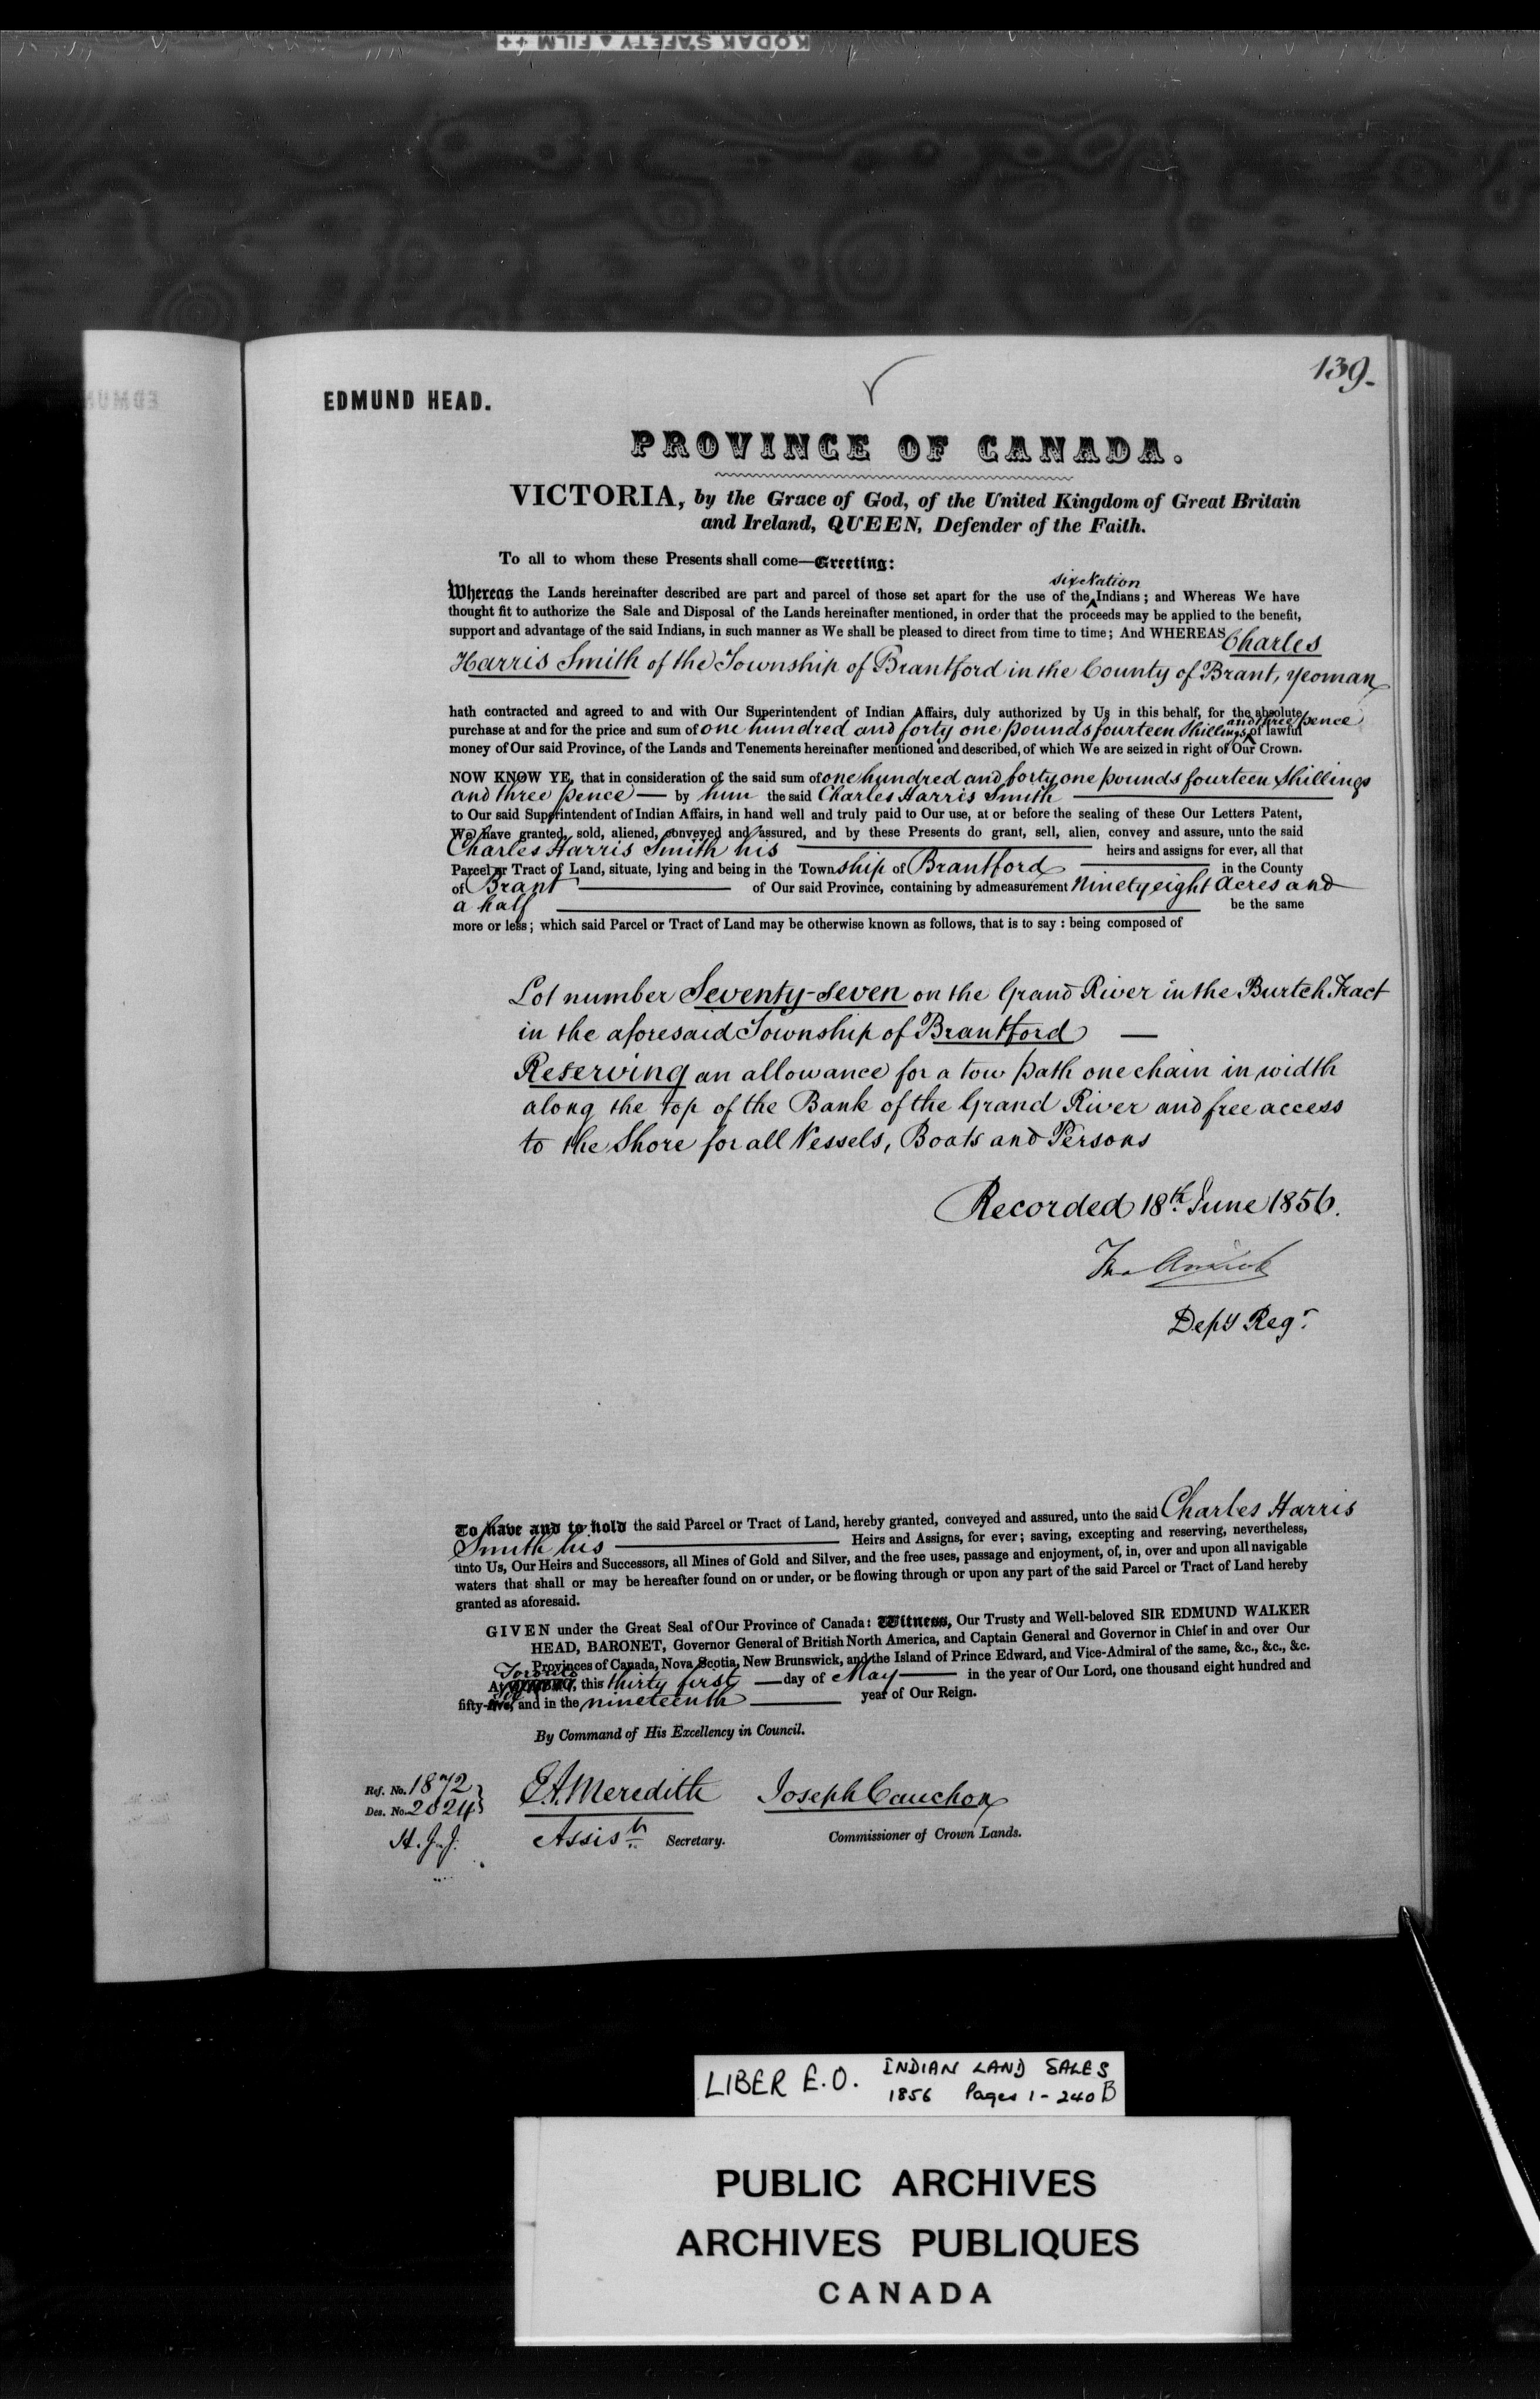 KODAK SAFETY ▲ FILM ++
139.
EDMUND HEAD.
PROVINCE OF CANADA.
VICTORIA, by the Grace of God, of the United Kingdom of Great Britain
and Ireland, QUEEN, Defender of the Faith.
To all to whom these Presents shall come—Greeting:
Six Nation
Whereas the Lands hereinafter described are part and parcel of those set apart for the use of the ‸ Indians; and Whereas We have
thought fit to authorize the Sale and Disposal of the Lands hereinafter mentioned, in order that the proceeds may be applied to the benefit,
support and advantage of the said Indians, in such manner as We shall be pleased to direct from time to time; And WHEREAS Charles
Harris Smith of the Township of Brantford in the County of Brant, yeoman
hath contracted and agreed to and with Our Superintendent of Indian Affairs, duly authorized by Us in this behalf, for the absolute
and three pence
purchase at and for the price and sum of one hundred and forty one pounds fourteen Shillings ‸ of lawful
money of Our said Province, of the Lands and Tenements hereinafter mentioned and described, of which We are seized in right of Our Crown.
NOW KNOW YE, that in consideration of the said sum of one hundred and forty one pounds fourteen Shillings
and three pence — by him the said Charles Harris Smith
to Our said Superintendent of Indian Affairs, in hand well and truly paid to Our use, at or before the sealing of these Our Letters Patent,
We have granted, sold, aliened, conveyed and assured, and by these Presents do grant, sell, alien, convey and assure, unto the said
Charles Harris Smith his heirs and assigns for ever, all that
Parcel or Tract of Land, situate, lying and being in the Township of Brantford in the County
of Brant of Our said Province, containing by admeasurement Ninety eight Acres and
a half be the same
more or less; which said Parcel or Tract of Land may be otherwise known as follows, that is to say: being composed of
Lot number Seventy-seven on the Grand River in the Burtch Tract
in the aforesaid Township of Brantford —
Reserving an allowance for a tow path one chain in width
along the top of the Bank of the Grand River and free access
to the Shore for all Vessels, Boats and Persons
Recorded 18th June 1856.
Depy Regr
To have and to hold the said Parcel or Tract of Land, hereby granted, conveyed and assured, unto the said Charles Harris
Smith his Heirs and Assigns, for ever; saving, excepting and reserving, nevertheless,
unto Us, Our Heirs and Successors, all Mines of Gold and Silver, and the free uses, passage and enjoyment, of, in, over and upon all navigable
waters that shall or may be hereafter found on or under, or be flowing through or upon any part of the said Parcel or Tract of Land hereby
granted as aforesaid.
GIVEN under the Great Seal of Our Province of Canada: Witness, Our Trusty and Well-beloved SIR EDMUND WALKER
HEAD, BARONET, Governor General of British North America, and Captain General and Governor in Chief in and over Our
Provinces of Canada, Nova Scotia, New Brunswick, and the Island of Prince Edward, and Vice-Admiral of the same, &c., &c., &c.
Toronto
At QUEBEC, this thirty first — day of May — in the year of Our Lord, one thousand eight hundred and
fifty-five, and in the nineteenth year of Our Reign.
By Command of His Excellency in Council.
Ref. No. 1872
Des. No. 2024
E.A. Meredith
Assist Secretary.
Joseph Cauchon
Commissioner of Crown Lands.
LIBER E.O. INDIAN LAND SALES
1856 Pages 1-240B
PUBLIC ARCHIVES
ARCHIVES PUBLIQUES
CANADA